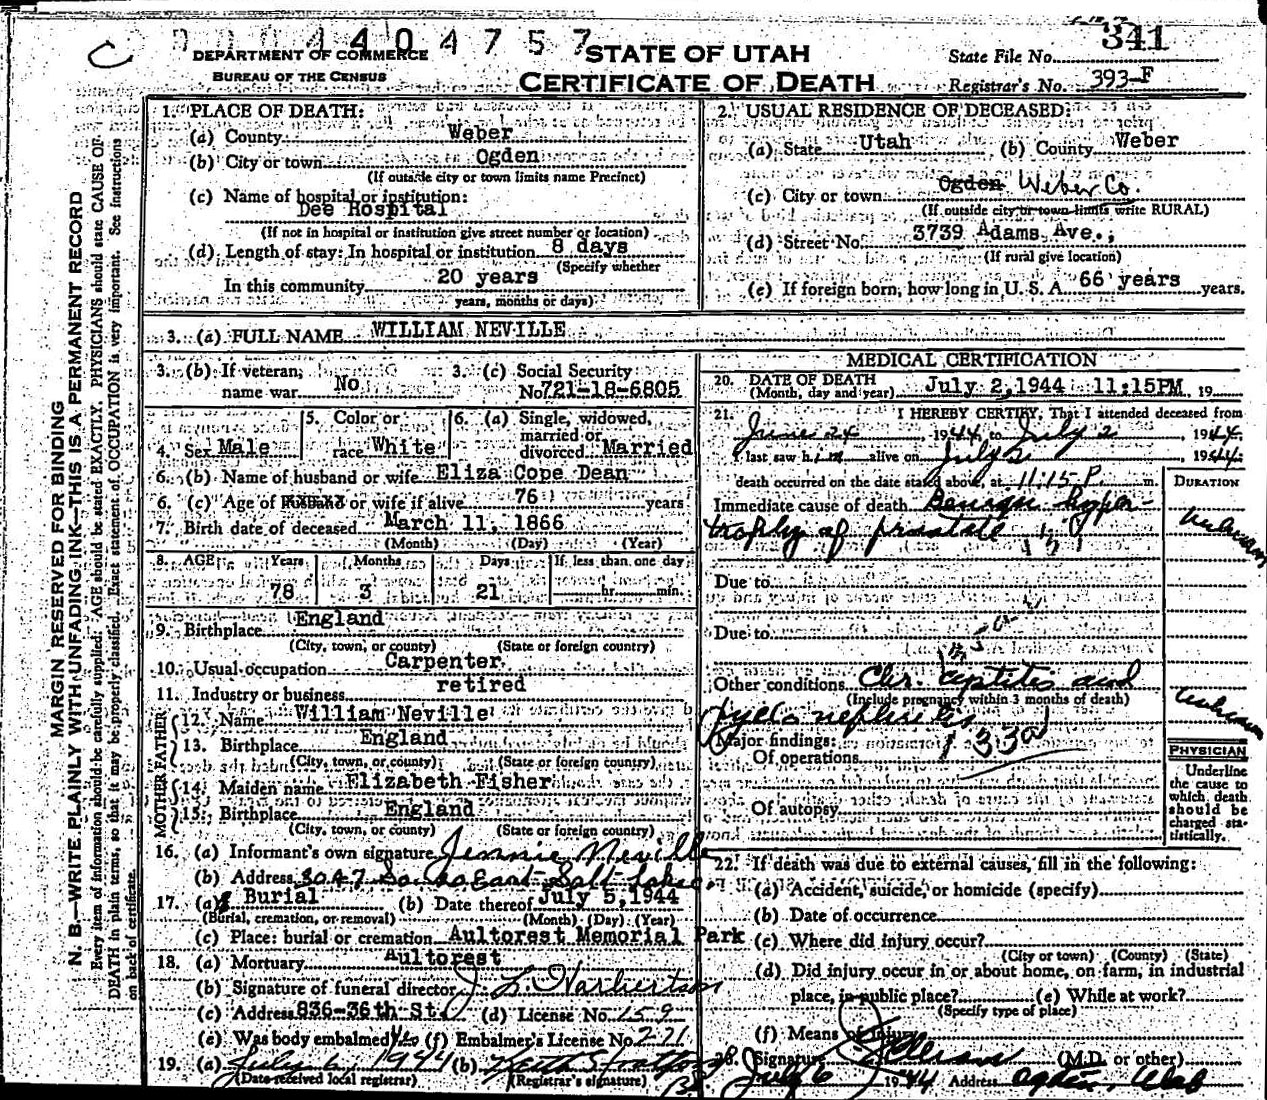 C 4404757
DEPARTMENT OF COMMERCE
BUREAU OF THE CENSUS
STATE OF UTAH
CERTIFICATE OF DEATH
State File No. 341
Registrar's No. 393-F
MARGIN RESERVED FOR BINDING
N. B.—WRITE PLAINLY WITH UNFADING INK—THIS IS A PERMANENT RECORD
Every item of information should be carefully supplied. AGE should be stated EXACTLY. PHYSICIANS should state CAUSE OF
DEATH in plain terms, so that it may be properly classified. Exact statement of OCCUPATION is very important. See instructions
on back of certificate.
1. PLACE OF DEATH:
(a) County Weber
(b) City or town Ogden
(If outside city or town limits name Precinct)
(c) Name of hospital or institution:
Dee Hospital
(If not in hospital or institution give street number or location)
(d) Length of stay: In hospital or institution 8 days
(Specify whether
In this community 20 years
years, months or days)
2. USUAL RESIDENCE OF DECEASED:
(a) State Utah (b) County Weber
(c) City or town Ogden Weber Co.
(If outside city or town limits write RURAL)
(d) Street No. 3739 Adams Ave.,
(If rural give location)
(e) If foreign born, how long in U. S. A. 66 years years.
3. (a) FULL NAME WILLIAM NEVILLE
3. (b) If veteran, name war No
3. (c) Social Security No. 721-18-6805
4. Sex Male
5. Color or race White
6. (a) Single, widowed, married or divorced Married
6. (b) Name of husband or wife Eliza Cope Dean
6. (c) Age of husband or wife if alive 76 years
7. Birth date of deceased March 11, 1866
(Month) (Day) (Year)
8. AGE Years Months Days If less than one day
78 3 21 hr. min.
9. Birthplace England
(City, town, or county) (State or foreign country)
10. Usual occupation Carpenter
11. Industry or business retired
FATHER
12. Name William Neville
13. Birthplace England
(City, town, or county) (State or foreign country)
MOTHER
14. Maiden name Elizabeth Fisher
15. Birthplace England
(City, town, or county) (State or foreign country)
16. (a) Informant's own signature Jennie Neville
(b) Address 3047 So. East Salt Lake
17. (a) Burial (b) Date thereof July 5, 1944
(Burial, cremation, or removal) (Month) (Day) (Year)
(c) Place: burial or cremation Aultorest Memorial Park
18. (a) Mortuary Aultorest
(b) Signature of funeral director J. L. Harbertson
(c) Address 836-36th St. (d) License No. 159
(e) Was body embalmed (f) Embalmer's License No. 271
19. (a) July 6, 1944 (b) Keith
(Date received local registrar) (Registrar's signature)
MEDICAL CERTIFICATION
20. DATE OF DEATH
(Month, day and year) July 2, 1944 11:15PM, 19
21. I HEREBY CERTIFY, That I attended deceased from
June 24, 1944, to July 2, 1944
I last saw him alive on July 2, 1944
death occurred on the date stated above, at 11:15 P. m.
DURATION
Immediate cause of death Benign hyper-
trophy of prostate unknown
Due to
Due to
Other conditions Chr. cystitis and
(Include pregnancy within 3 months of death)
pyelonephritis unknown
133a
Major findings:
Of operations
Of autopsy
PHYSICIAN
Underline
the cause to
which death
should be
charged sta-
tistically.
22. If death was due to external causes, fill in the following:
(a) Accident, suicide, or homicide (specify)
(b) Date of occurrence
(c) Where did injury occur?
(City or town) (County) (State)
(d) Did injury occur in or about home, on farm, in industrial
place, in public place? (e) While at work?
(Specify type of place)
(f) Means of injury
23. Signature (M.D. or other)
July 6 1944 Address Ogden, Utah